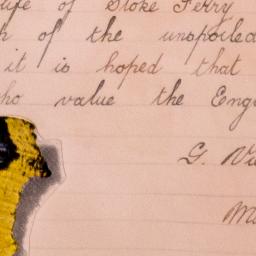 life of Stoke Ferry
of the unspoiled
it is hoped that
who value the Eng
G.